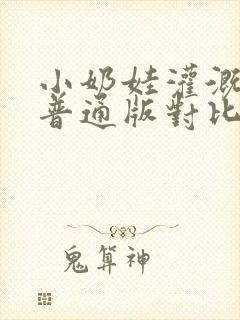 小奶娃灌溉
普通版對比
鬼算神